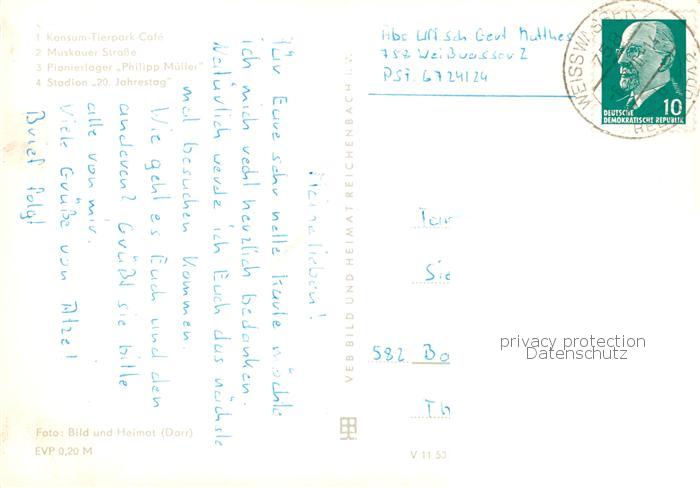 1 Konsum-Tierpark-Café
2 Muskauer Straße
3 Pionierlager „Philipp Müller"
4 Stadion „20. Jahrestag"
Meine lieben!
Für Eure sehr nette Karte möchte
ich mich recht herzlich bedanken.
Natürlich werde ich Euch das nächste
mal besuchen kommen.
Wie geht es Euch und den
anderen? Grüßt sie bitte
alle von mir.
Viele Grüße von Atze!
Brief folgt
Foto: Bild und Heimat (Darr)
EVP 0,20 M
VEB BILD UND HEIMAT REICHENBACH i. V.
V 11 50
Abs. Uffsch Gert Matthes
758 Weißwasser 2
PSF 67241 24
WEISSWASSER
DEUTSCHE
DEMOKRATISCHE REPUBLIK
10
Sie
582 Ba
Th
privacy protection
Datenschutz